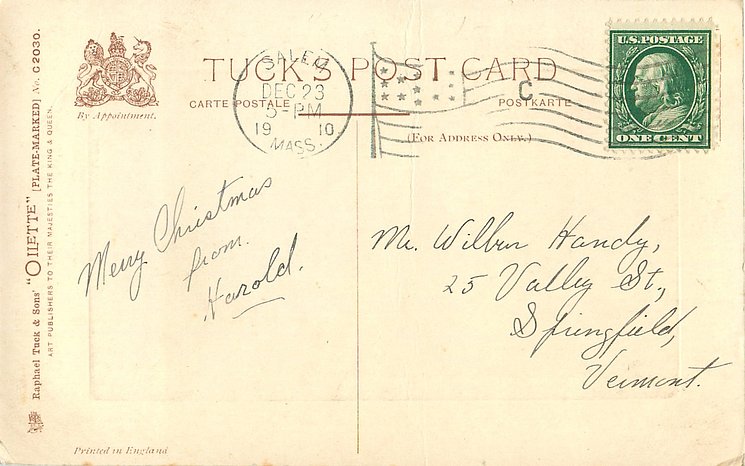 Raphael Tuck & Sons' "OILETTE" [PLATE-MARKED] No. C2030.
ART PUBLISHERS TO THEIR MAJESTIES THE KING & QUEEN.
By Appointment.
TUCK'S POST CARD
CARTE POSTALE
POSTKARTE
(FOR ADDRESS ONLY.)
SALEM
DEC 23
5-PM
19 10
MASS.
C
U.S. POSTAGE
ONE CENT
Merry Christmas
from
Harold.
Mr. Wilbur Handy,
25 Valley St.,
Springfield,
Vermont.
Printed in England